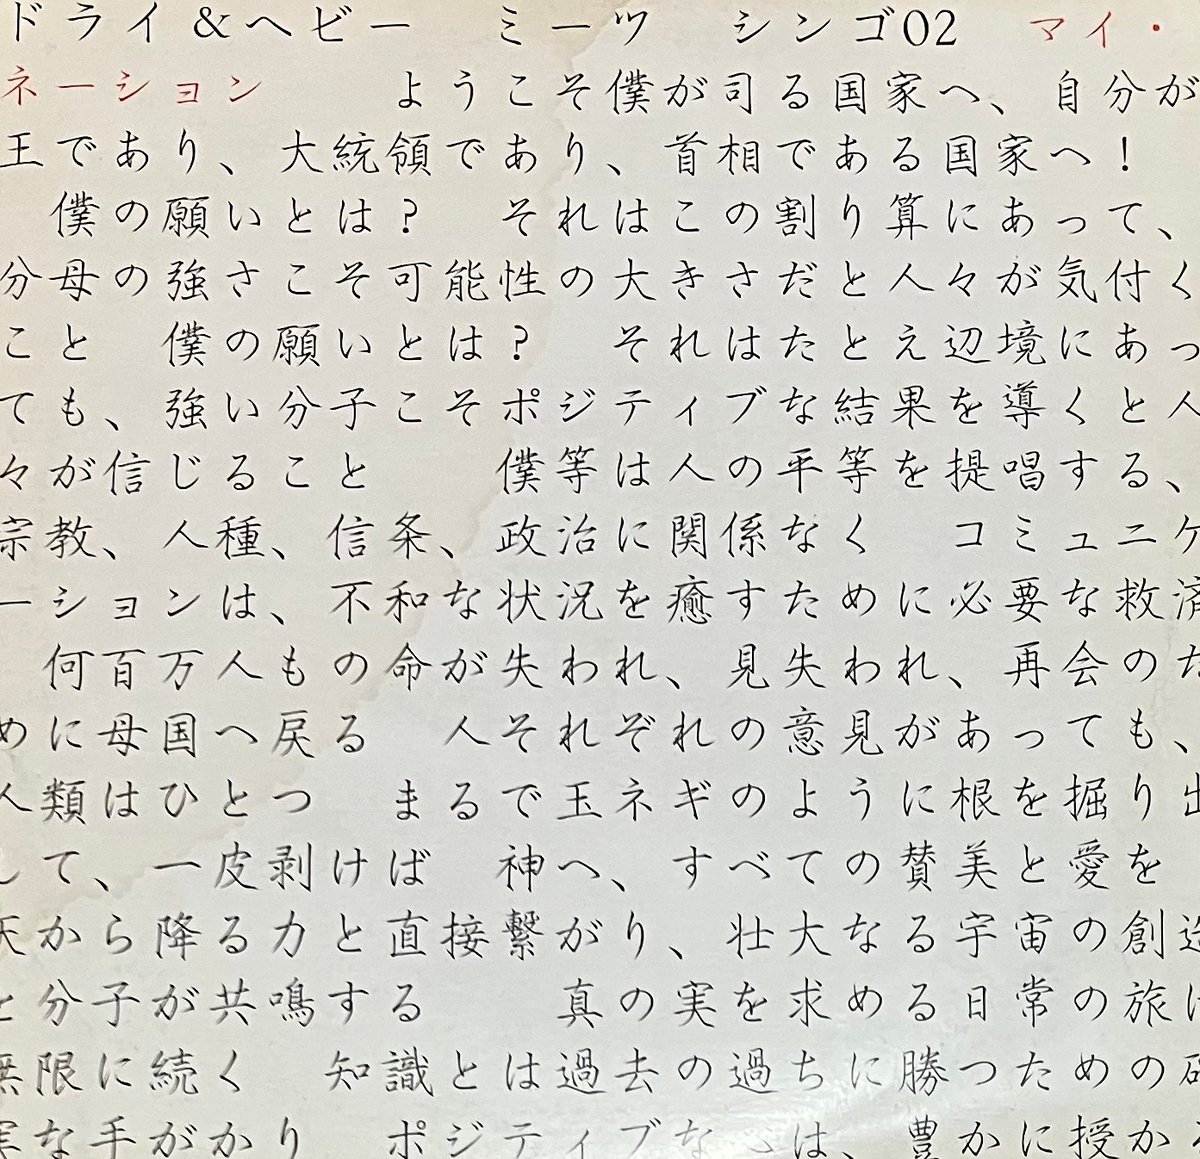 ドライ&ヘビー　ミーツ　シンゴ02　マイ・
ネーション　　ようこそ僕が司る国家へ、自分が
王であり、大統領であり、首相である国家へ!
僕の願いとは?　それはこの割り算にあって、
分母の強さこそ可能性の大きさだと人々が気付く
こと　僕の願いとは?　それはたとえ辺境にあっ
ても、強い分子こそポジティブな結果を導くと人
々が信じること　　僕等は人の平等を提唱する、
宗教、人種、信条、政治に関係なく　コミュニケ
ーションは、不和な状況を癒すために必要な救済
何百万人もの命が失われ、見失われ、再会のた
めに母国へ戻る　人それぞれの意見があっても、
人類はひとつ　まるで玉ネギのように根を掘り出
して、一皮剥けば　神へ、すべての賛美と愛を
天から降る力と直接繋がり、壮大なる宇宙の創造
と分子が共鳴する　　真の実を求める日常の旅は
無限に続く　知識とは過去の過ちに勝つための確
実な手がかり　ポジティブな心は、豊かに授かる